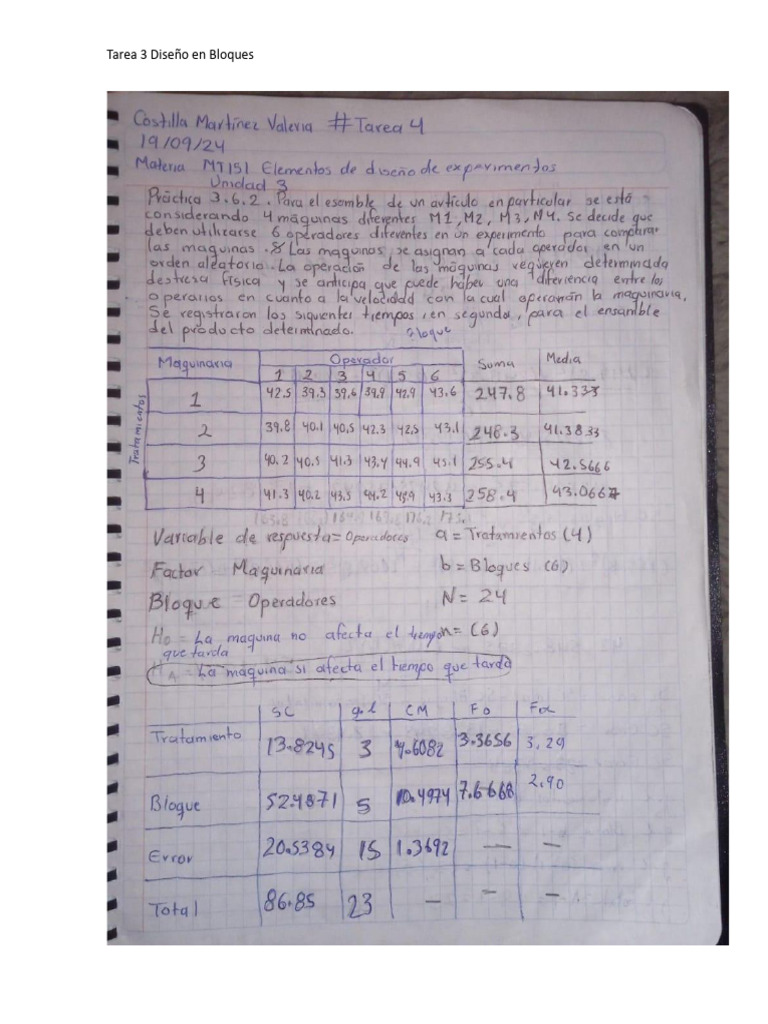 Tarea 3 Diseño en Bloques
Costilla Martínez Valeria # Tarea 4
19/09/24
Materia MT151 Elementos de diseño de experimentos
Unidad 3
Práctica 3.6.2. Para el esamble de un artículo en particular se está
considerando 4 máquinas diferentes M1, M2, M3, M4. Se decide que
deben utilizarse 6 operadores diferentes en un experimento para comparar
las maquinas. Las maquinas se asignan a cada operador en un
orden aleatorio. La operación de las máquinas requieren determinada
destresa física y se anticipa que puede haber una diferiencia entre los
operarios en cuanto a la velocidad con la cual operarán la maquinaria.
Se registraron los siguientes tiempos, en segundo, para el ensamble
del producto determinado.
Bloque
Maquinaria Operador Suma Media
1 2 3 4 5 6
Tratamientos
1 42.5 39.3 39.6 39.9 42.9 43.6 247.8 41.333
2 39.8 40.1 40.5 42.3 42.5 43.1 248.3 41.3833
3 40.2 40.5 41.3 43.4 44.9 45.1 255.4 42.5666
4 41.3 40.2 43.5 44.2 45.9 43.3 258.4 43.0667
Variable de respuesta = Operadores a = Tratamientos (4)
Factor Maquinaria b = Bloques (6)
Bloque = Operadores N = 24
H0 = La maquina no afecta el tiempo n = (6)
que tarda
HA = La máquina si afecta el tiempo que tarda
SC g.l CM F0 Fα
Tratamiento 13.8245 3 4.6082 3.3656 3.29
Bloque 52.4871 5 10.4974 7.6668 2.90
Error 20.5384 15 1.3692 — —
Total 86.85 23 — — —